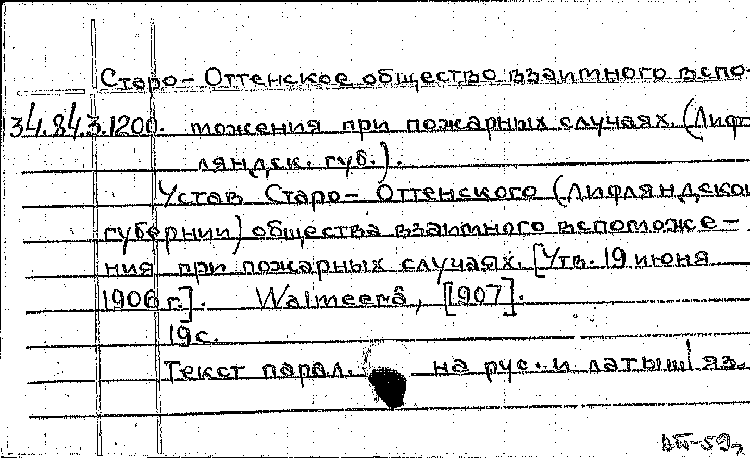 Старо-Оттенское общество взаимного вспо-
34.84.3.1200. можения при пожарных случаях. (Лиф-
ляндск. губ.).
Устав Старо-Оттенского (Лифляндской
губернии) общества взаимного вспоможе-
ния при пожарных случаях. [Утв. 19 июня
1906 г.]. Walmeerâ, [1907].
19 с.
Текст парал. на рус. и латыш. яз.